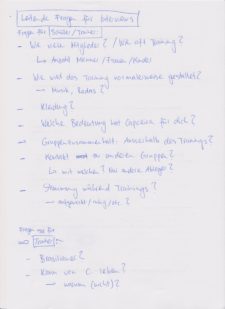 Leitende Fragen für Interviews
Fragen für Schüler/Trainer:
- Wie viele Mitglieder? / Wie oft Training?
↳ Anzahl Männer/Frauen/Kinder
- Wie wird das Training normalerweise gestaltet?
→ Musik, Rodas?
- Kleidung?
- Welche Bedeutung hat Capoeira für dich?
- Gruppenzusammenhalt: Ausserhalb des Trainings?
- Kontakt zu anderen Gruppen?
↳ mit welchen? Nur andere Ableger?
- Stimmung während Trainings?
→ /ruhig/etc.?
Fragen nur für
Trainer:
- Brasilianer?
- Kann von C. leben?
→ warum (nicht)?